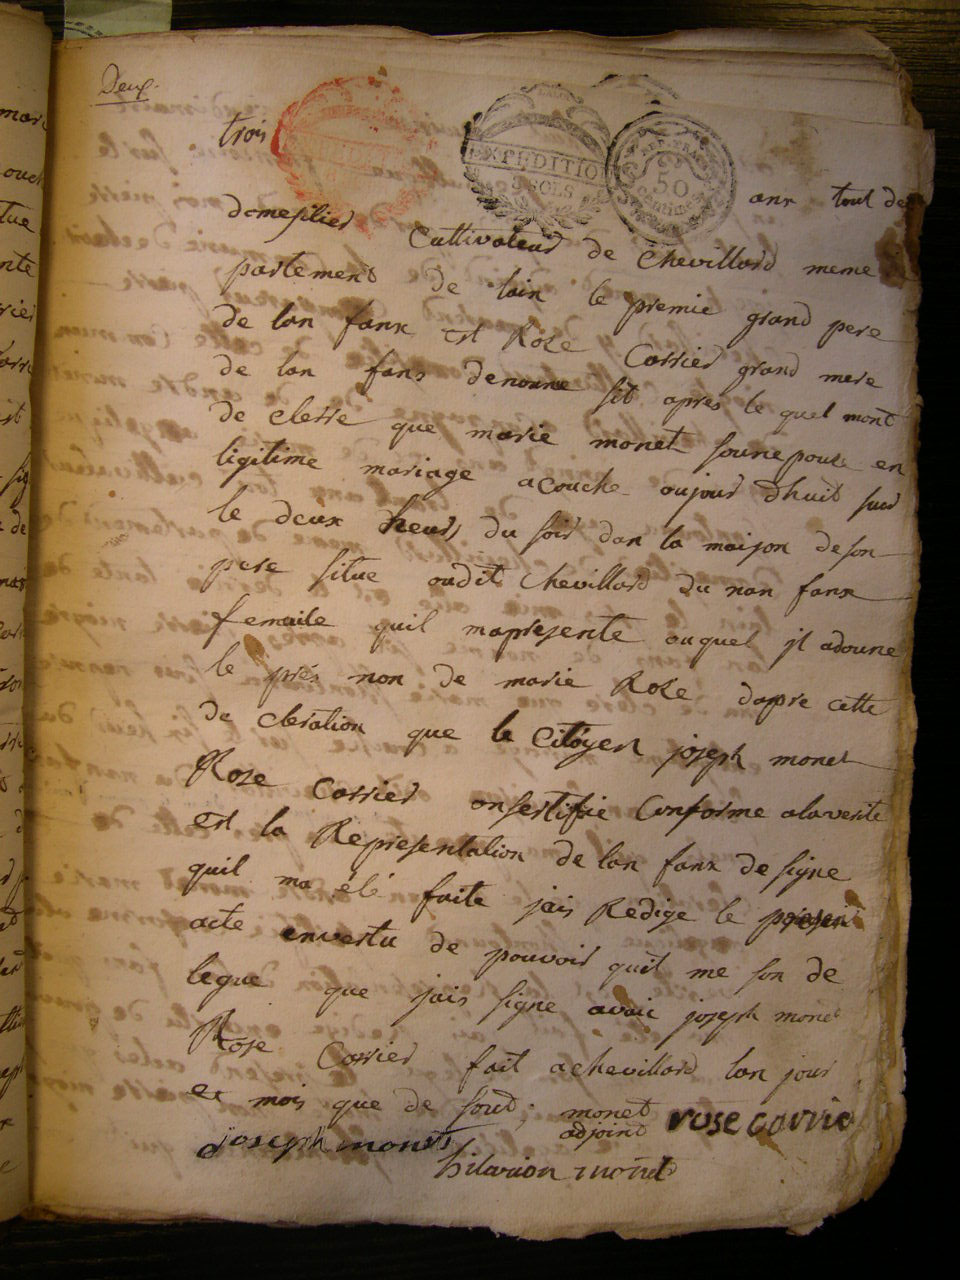 Deux.
trois
EXPEDITION
2 SOLS
RET. EXTRA
50
Centimes
anx tout de
domesilier Cultivateur de Chevillard meme
partement de lain le premie grand pere
de lan fanx est Rose Carrier grand mere
de lan fans denoune sit apres le quel mont
de clerre que marie monet sounepouse en
ligitime mariage acouche oujour dhuit sur
le deux heurs du soir dan la maison de son
pere situe oudit Chevillard du nan fanx
femaile quil mapresente ouquel jl adoune
le prés non de marie Rose dapre cette
de cleration que le Citoyen joseph monet
Rose Carrier onsertifie Conforme alaverite
est la Representation de lan fanx de signe
quil ma été faite jais Redige le presen
acte envertu de pouvoir quil me son de
legue que jais signe avaic joseph monet
Rose Carrier fait a chevillard lan jour
et mois que de sout; monet
adjoint
rose carrie
joseph monet
hilarion monet